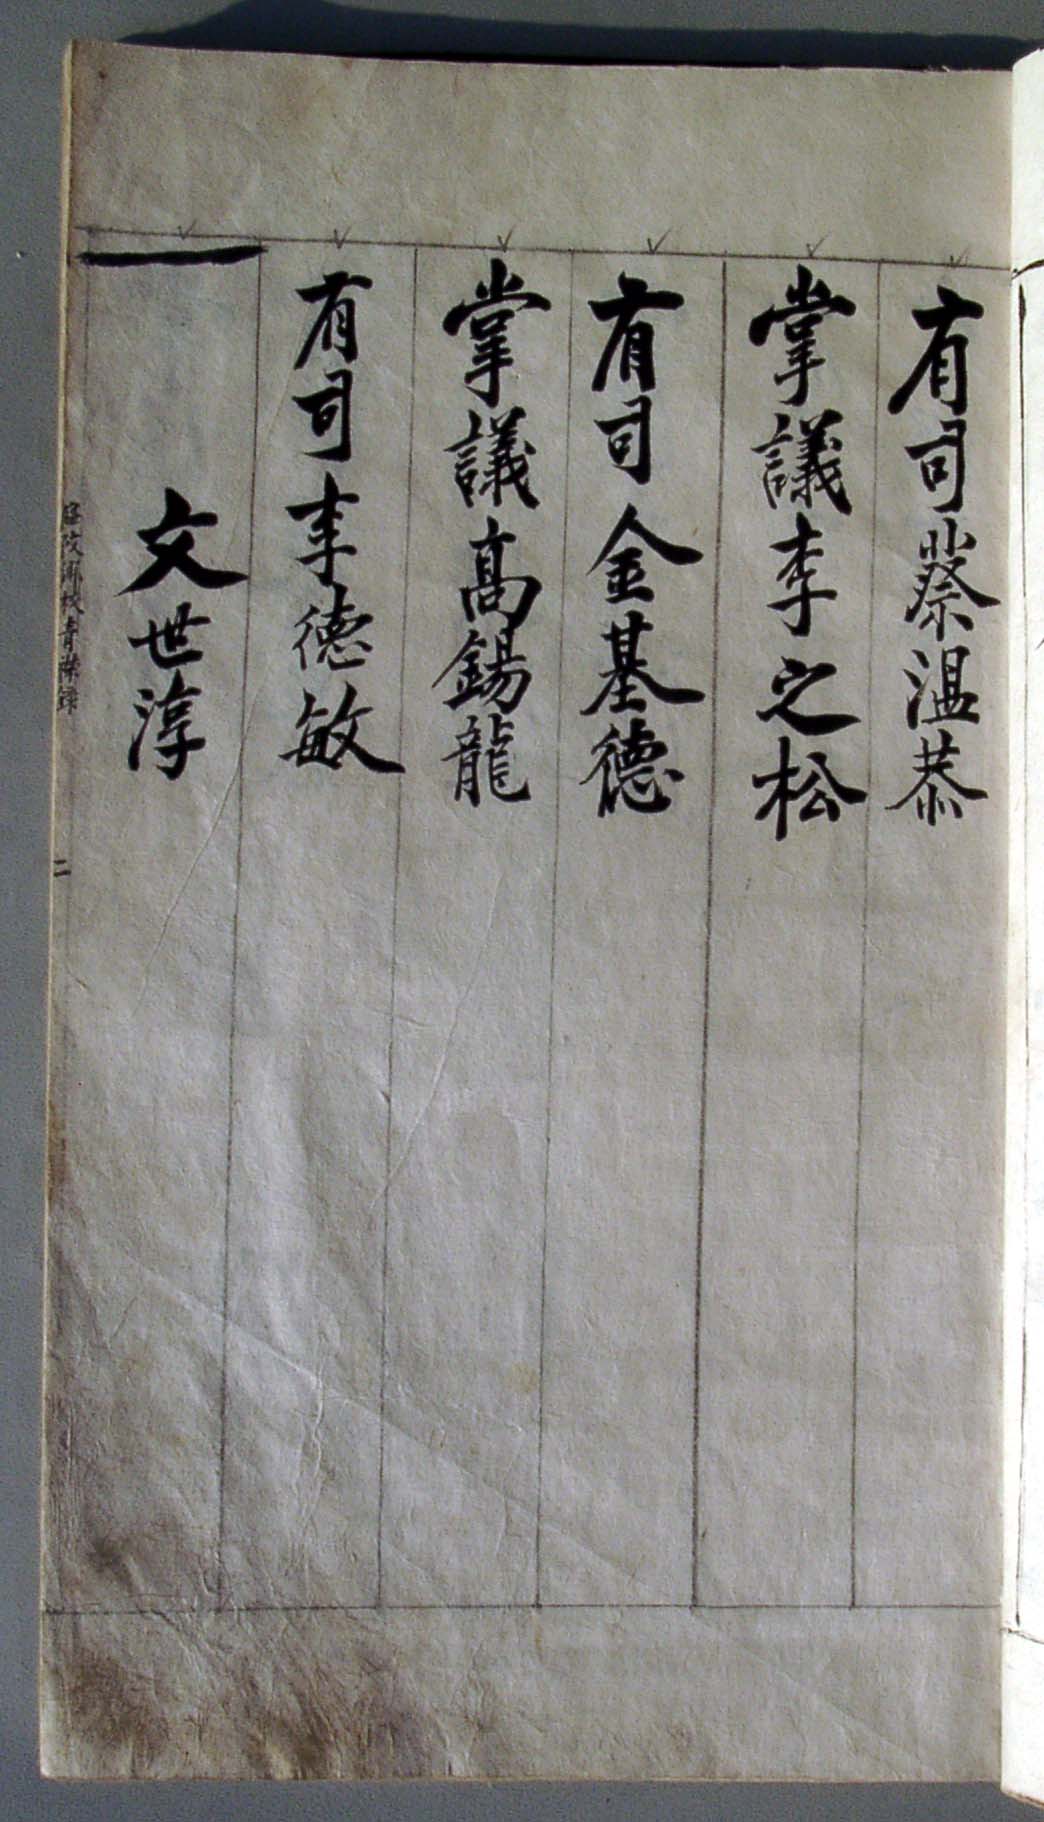 有司蔡温恭
掌議李之松
有司金基德
掌議高錫龍
有司李德敏
文世淳
鄕校靑襟錄
二